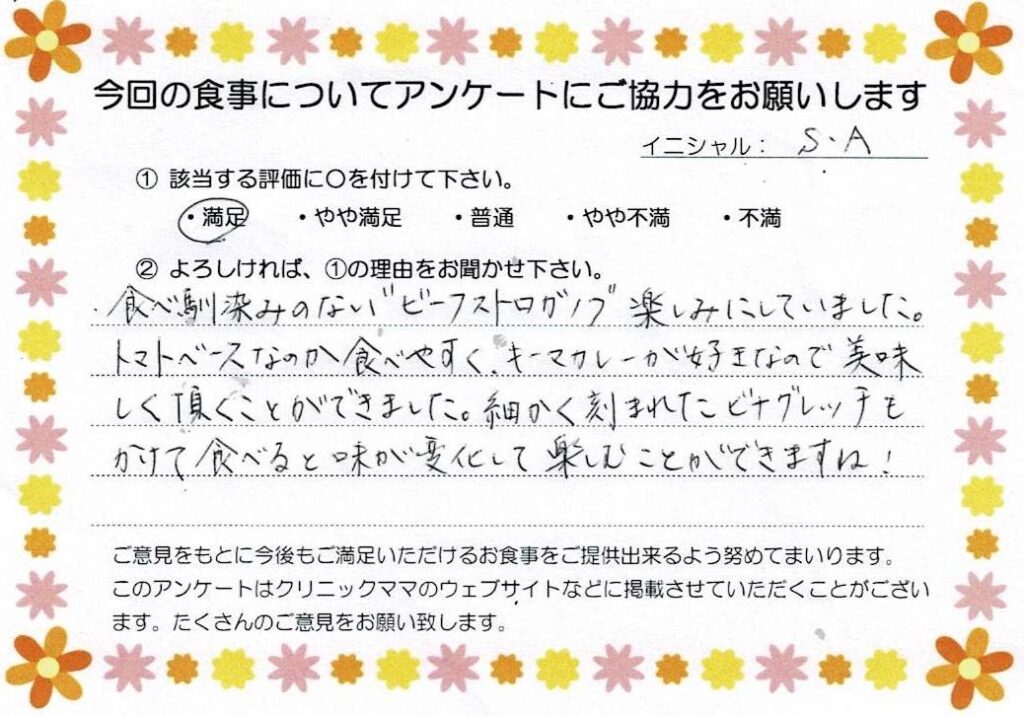 今回の食事についてアンケートにご協力をお願いします
イニシャル： S.A
① 該当する評価に○を付けて下さい。
・満足 ・やや満足 ・普通 ・やや不満 ・不満
② よろしければ、①の理由をお聞かせ下さい。
食べ馴染みのない"ビーフストロガノブ 楽しみにしていました。
トマトベースなのか食べやすく、キーマカレーが好きなので美味
しく頂くことができました。細かく刻まれたビナグレッチも
かけて食べると味が変化して楽しむことができますね！
ご意見をもとに今後もご満足いただけるお食事をご提供出来るよう努めてまいります。
このアンケートはクリニックママのウェブサイトなどに掲載させていただくことがござい
ます。たくさんのご意見をお願い致します。